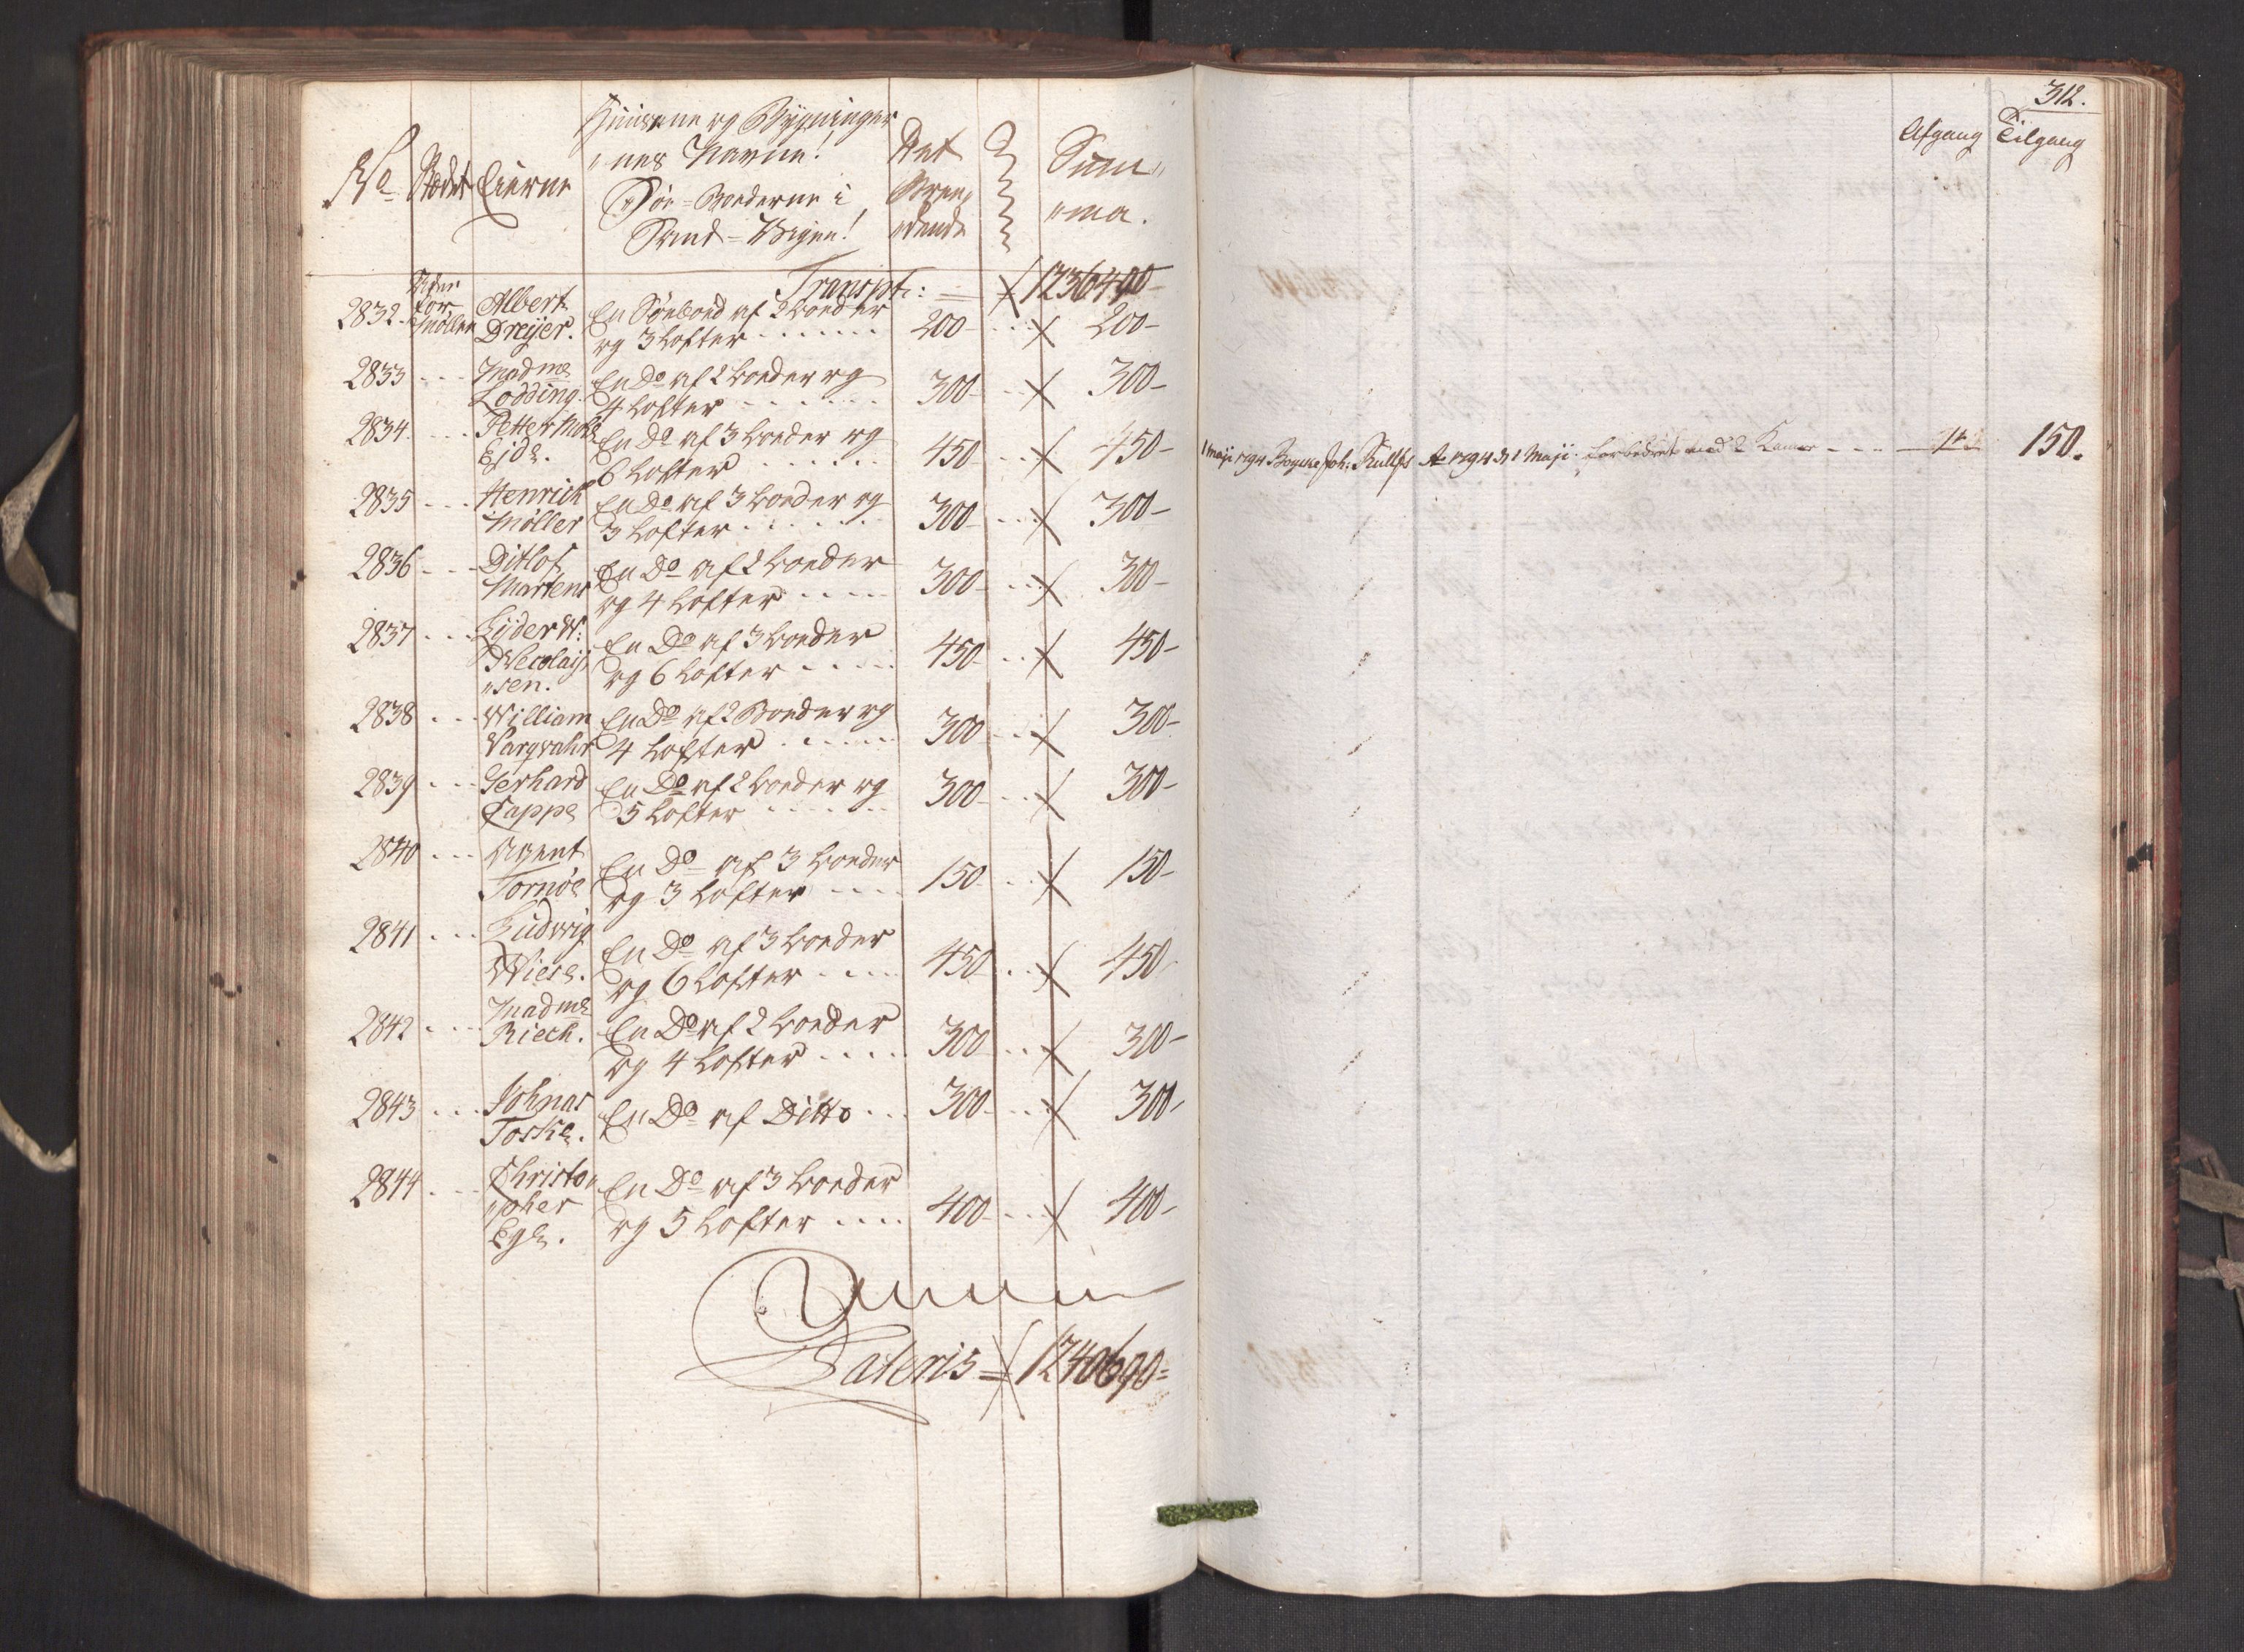 Huusene og Bygninger
No Stædet Eierne "nes Navne! Det Bren "dende Sum "ma.
Søe-Boederne i
Sand-Wigen!
Transpt: 1236490-
2832. Uden for Møllen Albert Dreÿer. En Søeboed af 3 boeder
og 3 Lofter 200- 200-
2833 Madme Lodding. En Do af 2 boeder og
4 Lofter 300- 300-
2834. Petter Eide. En Do af 3 boeder og
6 Lofter 450- 450-
2835 Henrich Møller En Do af 3 boeder og
3 Lofter 300- 300-
2836 Ditlof Martens En Do af 2 boeder
og 4 Lofter 300- 300-
2837 Lÿder W: Necolaÿ "sen. En Do af 3 boeder
og 6 Lofter 450- 450-
2838 William Vargvahr En Do af 2 Boeder og
4 Lofter 300- 300-
2839 Gerhard Cappe En Do af 2 boeder og
5 Lofter 300- 300-
2840 Agent Tornøe En Do af 3 boeder
og 3 Lofter 150- 150-
2841 Ludwig Wiese. En Do af 3 boeder
og 6 Lofter 450- 450-
2842 Madme Riech. En Do af 2 boeder
og 4 Lofter 300- 300-
2843 Johnas Toske. En Do af Ditto 300- 300-
2844 Christo "pher Ege. En Do af 3 boeder
og 5 Lofter 400- 400-
Lateris 1240690-
312.
Afgang Tilgang
1 Maji 1794 Joh: Ao 1794 1 Maji forbedret med 2 150.